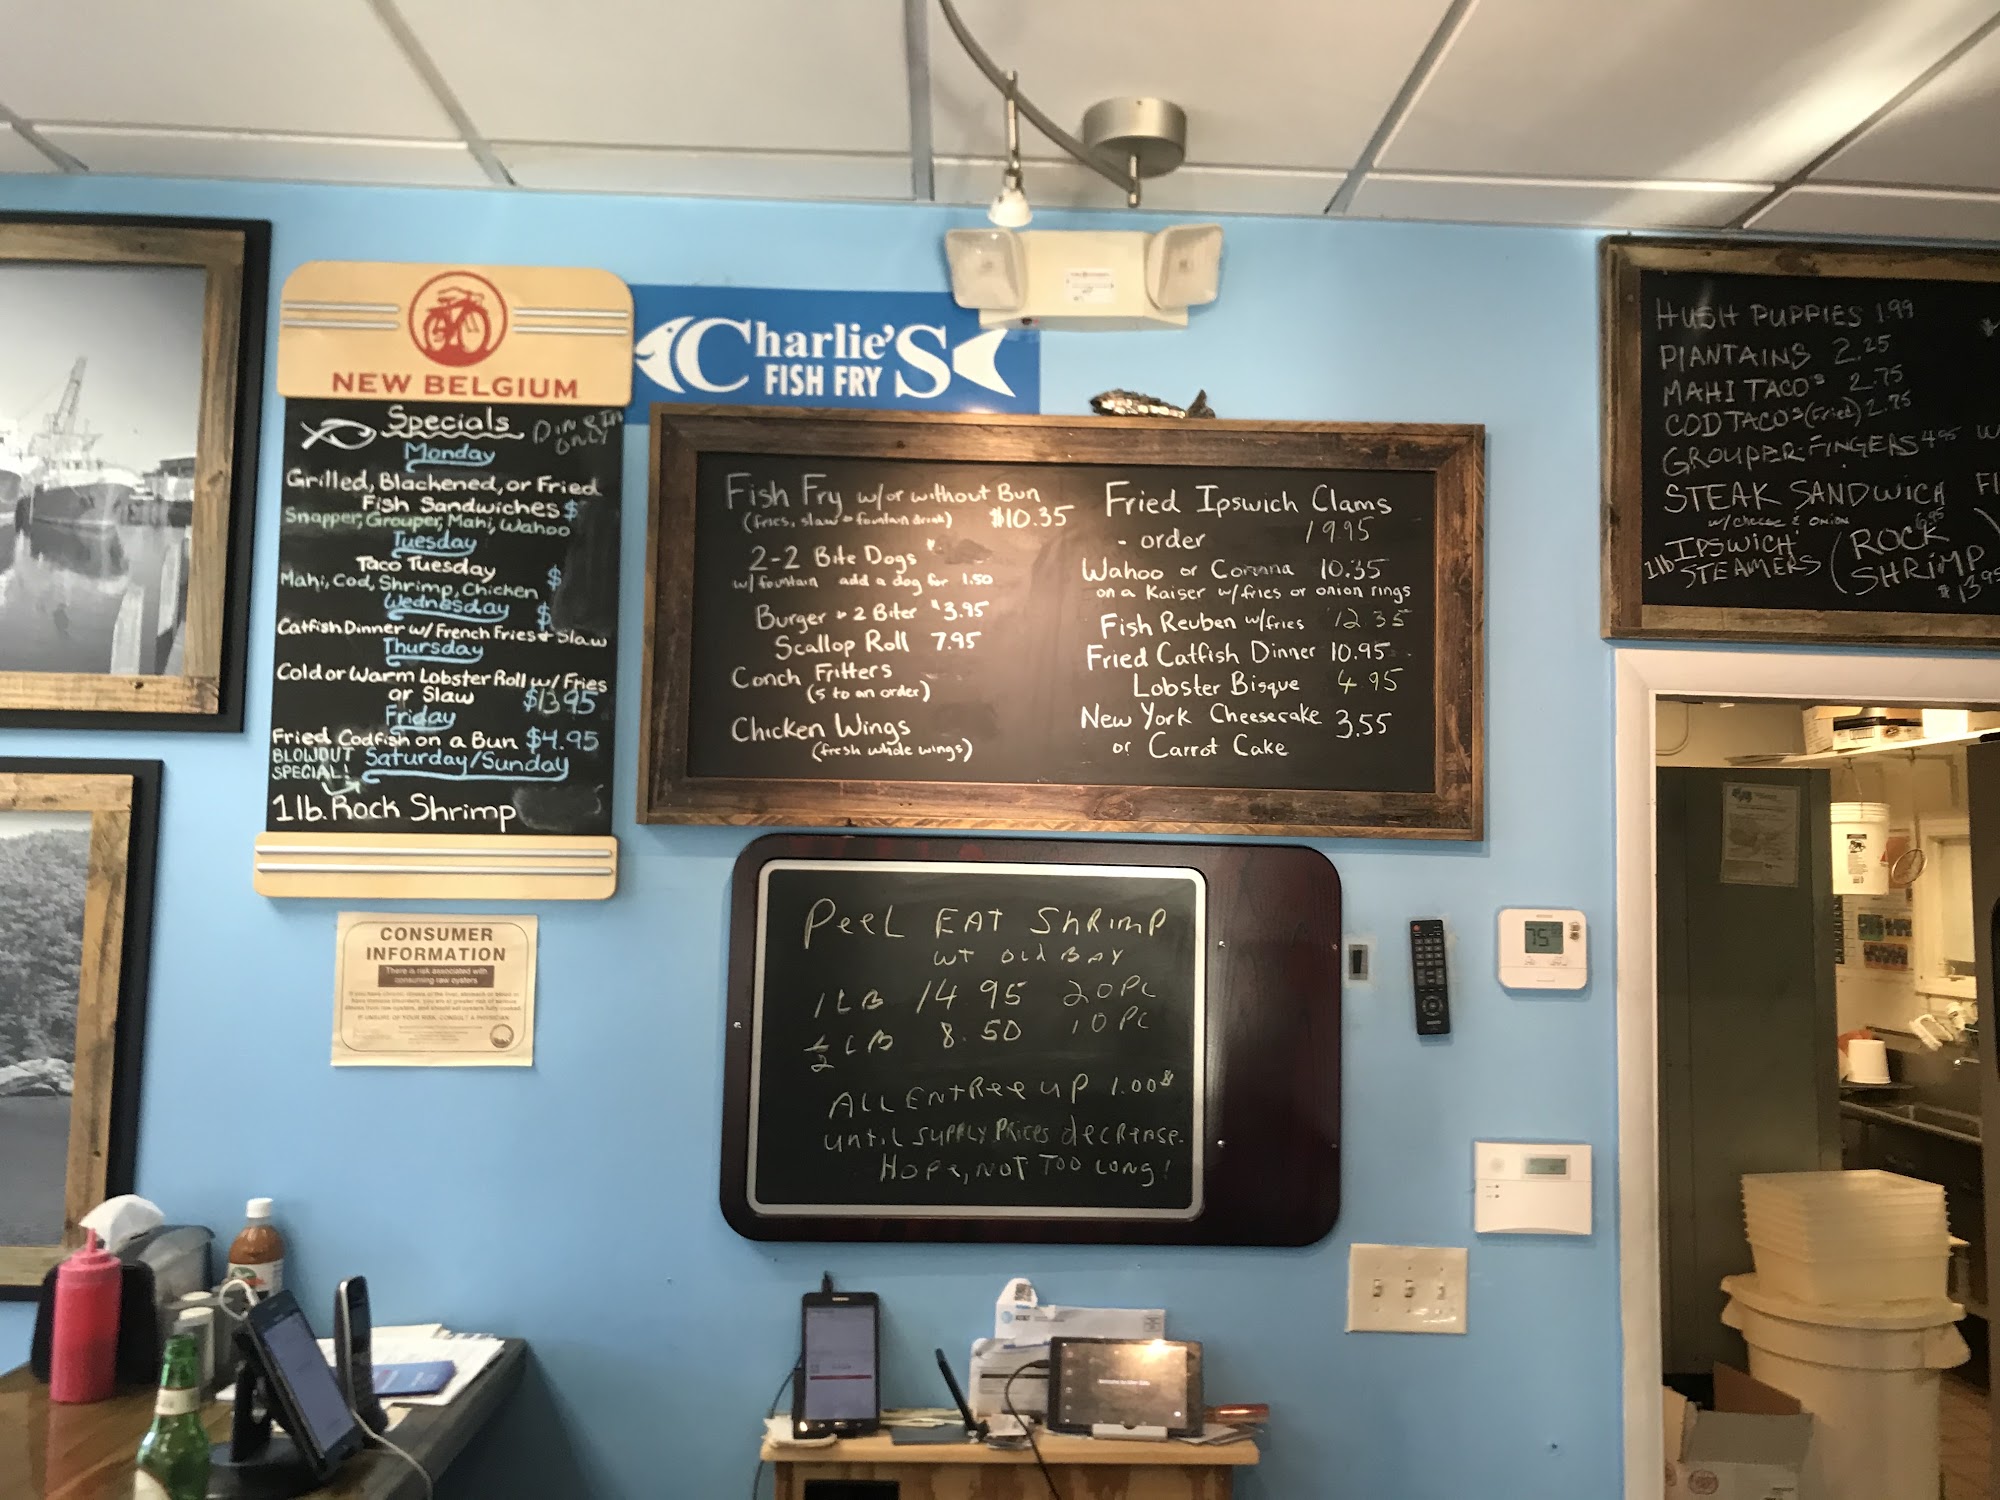 NEW BELGIUM
Specials
DINE IN
ONLY
Monday
Grilled, Blackened, or Fried
Fish Sandwiches $
Snapper, Grouper, Mahi, Wahoo
Tuesday
Taco Tuesday $
Mahi, Cod, Shrimp, Chicken
Wednesday $
Catfish Dinner w/ French Fries + Slaw
Thursday
Cold or Warm Lobster Roll w/ Fries
or Slaw $13.95
Friday
Fried Codfish on a Bun $4.95
BLOWOUT
SPECIAL!
Saturday/Sunday
1 lb. Rock Shrimp
Charlie'S
FISH FRY
Fish Fry w/or without Bun
(fries, slaw + fountain drink) $10.35
2-2 Bite Dogs
w/fountain add a dog for 1.50
Burger + 2 Biter $3.95
Scallop Roll 7.95
Conch Fritters
(5 to an order)
Chicken Wings
(fresh whole wings)
Fried Ipswich Clams
- order 19.95
Wahoo or Corvina 10.35
on a Kaiser w/fries or onion rings
Fish Reuben w/fries 12.35
Fried Catfish Dinner 10.95
Lobster Bisque 4.95
New York Cheesecake 3.55
or Carrot Cake
HUSH PUPPIES 1.99
PLANTAINS 2.25
MAHI TACOS 2.75
COD TACOS (Fried) 2.75
GROUPER-FINGERS 4.95
STEAK SANDWICH
w/cheese & onion 6.95
1lb IPSWICH
STEAMERS
(ROCK
SHRIMP
$13.95
PeeL EAT SHRIMP
WT Old BAY
1 LB 14.95 20 PC
1/2 LB 8.50 10 PC
ALL ENTREE UP 1.00$
UNTIL SUPPLY PRICES decREASE.
HOPE, NOT TOO LONG!
CONSUMER
INFORMATION
There is risk associated with
consuming raw oysters
IF UNSURE OF YOUR RISK, CONSULT A PHYSICIAN
75
AT&T